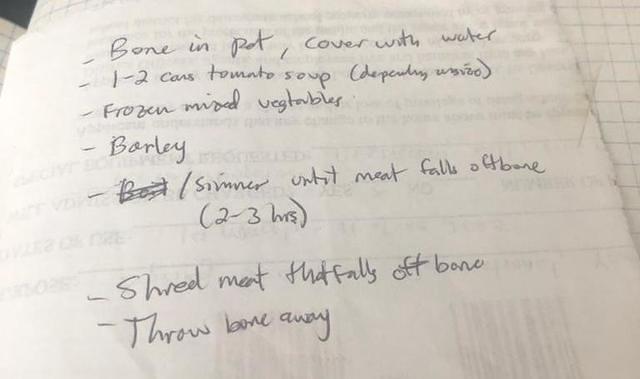 - Bone in pot, cover with water
- 1-2 cans tomato soup (depending on size)
- Frozen mixed vegtables.
- Barley
- / simmer until meat falls off bone
(2-3 hrs)
- Shred meat that falls off bone
- Throw bone away